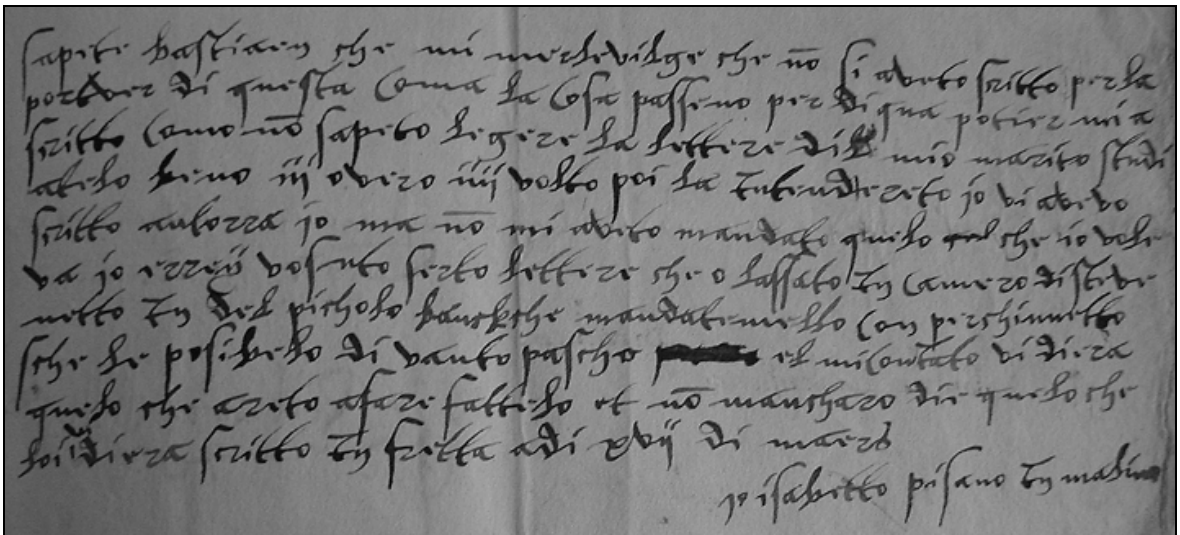 sapete bastiaen che mi merlevilge che nō si aveto scritto per la
portver di questa Coma la Cosa passeno per di qua potier mia
scritto Como nō sapeto legere la lettere dil mio marito studi
atelo beno iij overo iiij volto poi la intendereto io vi avevo
scritto ankorra io ma nō mi aveto mandato quelo che io vole
va io erreij vosuto serto lettere che o lassato in Camero di steve
netto in del picholo banck che mandatemello Con perchinnetto
sche le posibelo di vanto pascho el mi Contato vi diera
quelo che areto afare fattelo et nō mancharo die quelo che
loi vi diera scritto in fretta adi xvij di maers
io isabetto pisano in malino